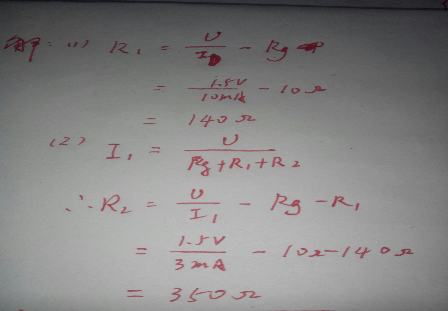 解: (1) R₁ = U/I₀ - Rg
= 1.5V/10mA - 10Ω
= 140Ω
(2) I₁ = U/(Rg+R₁+R₂)
∴ R₂ = U/I₁ - Rg - R₁
= 1.5V/3mA - 10Ω - 140Ω
= 350Ω